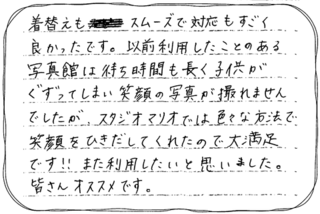 着替えもスムーズで対応もすごく
良かったです。以前利用したことのある
写真館は待ち時間も長く子供が
ぐずってしまい笑顔の写真が撮れません
でしたが、スタジオマリオでは色々な方法で
笑顔をひきだしてくれたので大満足
です!! また利用したいと思いました。
皆さんオススメです。